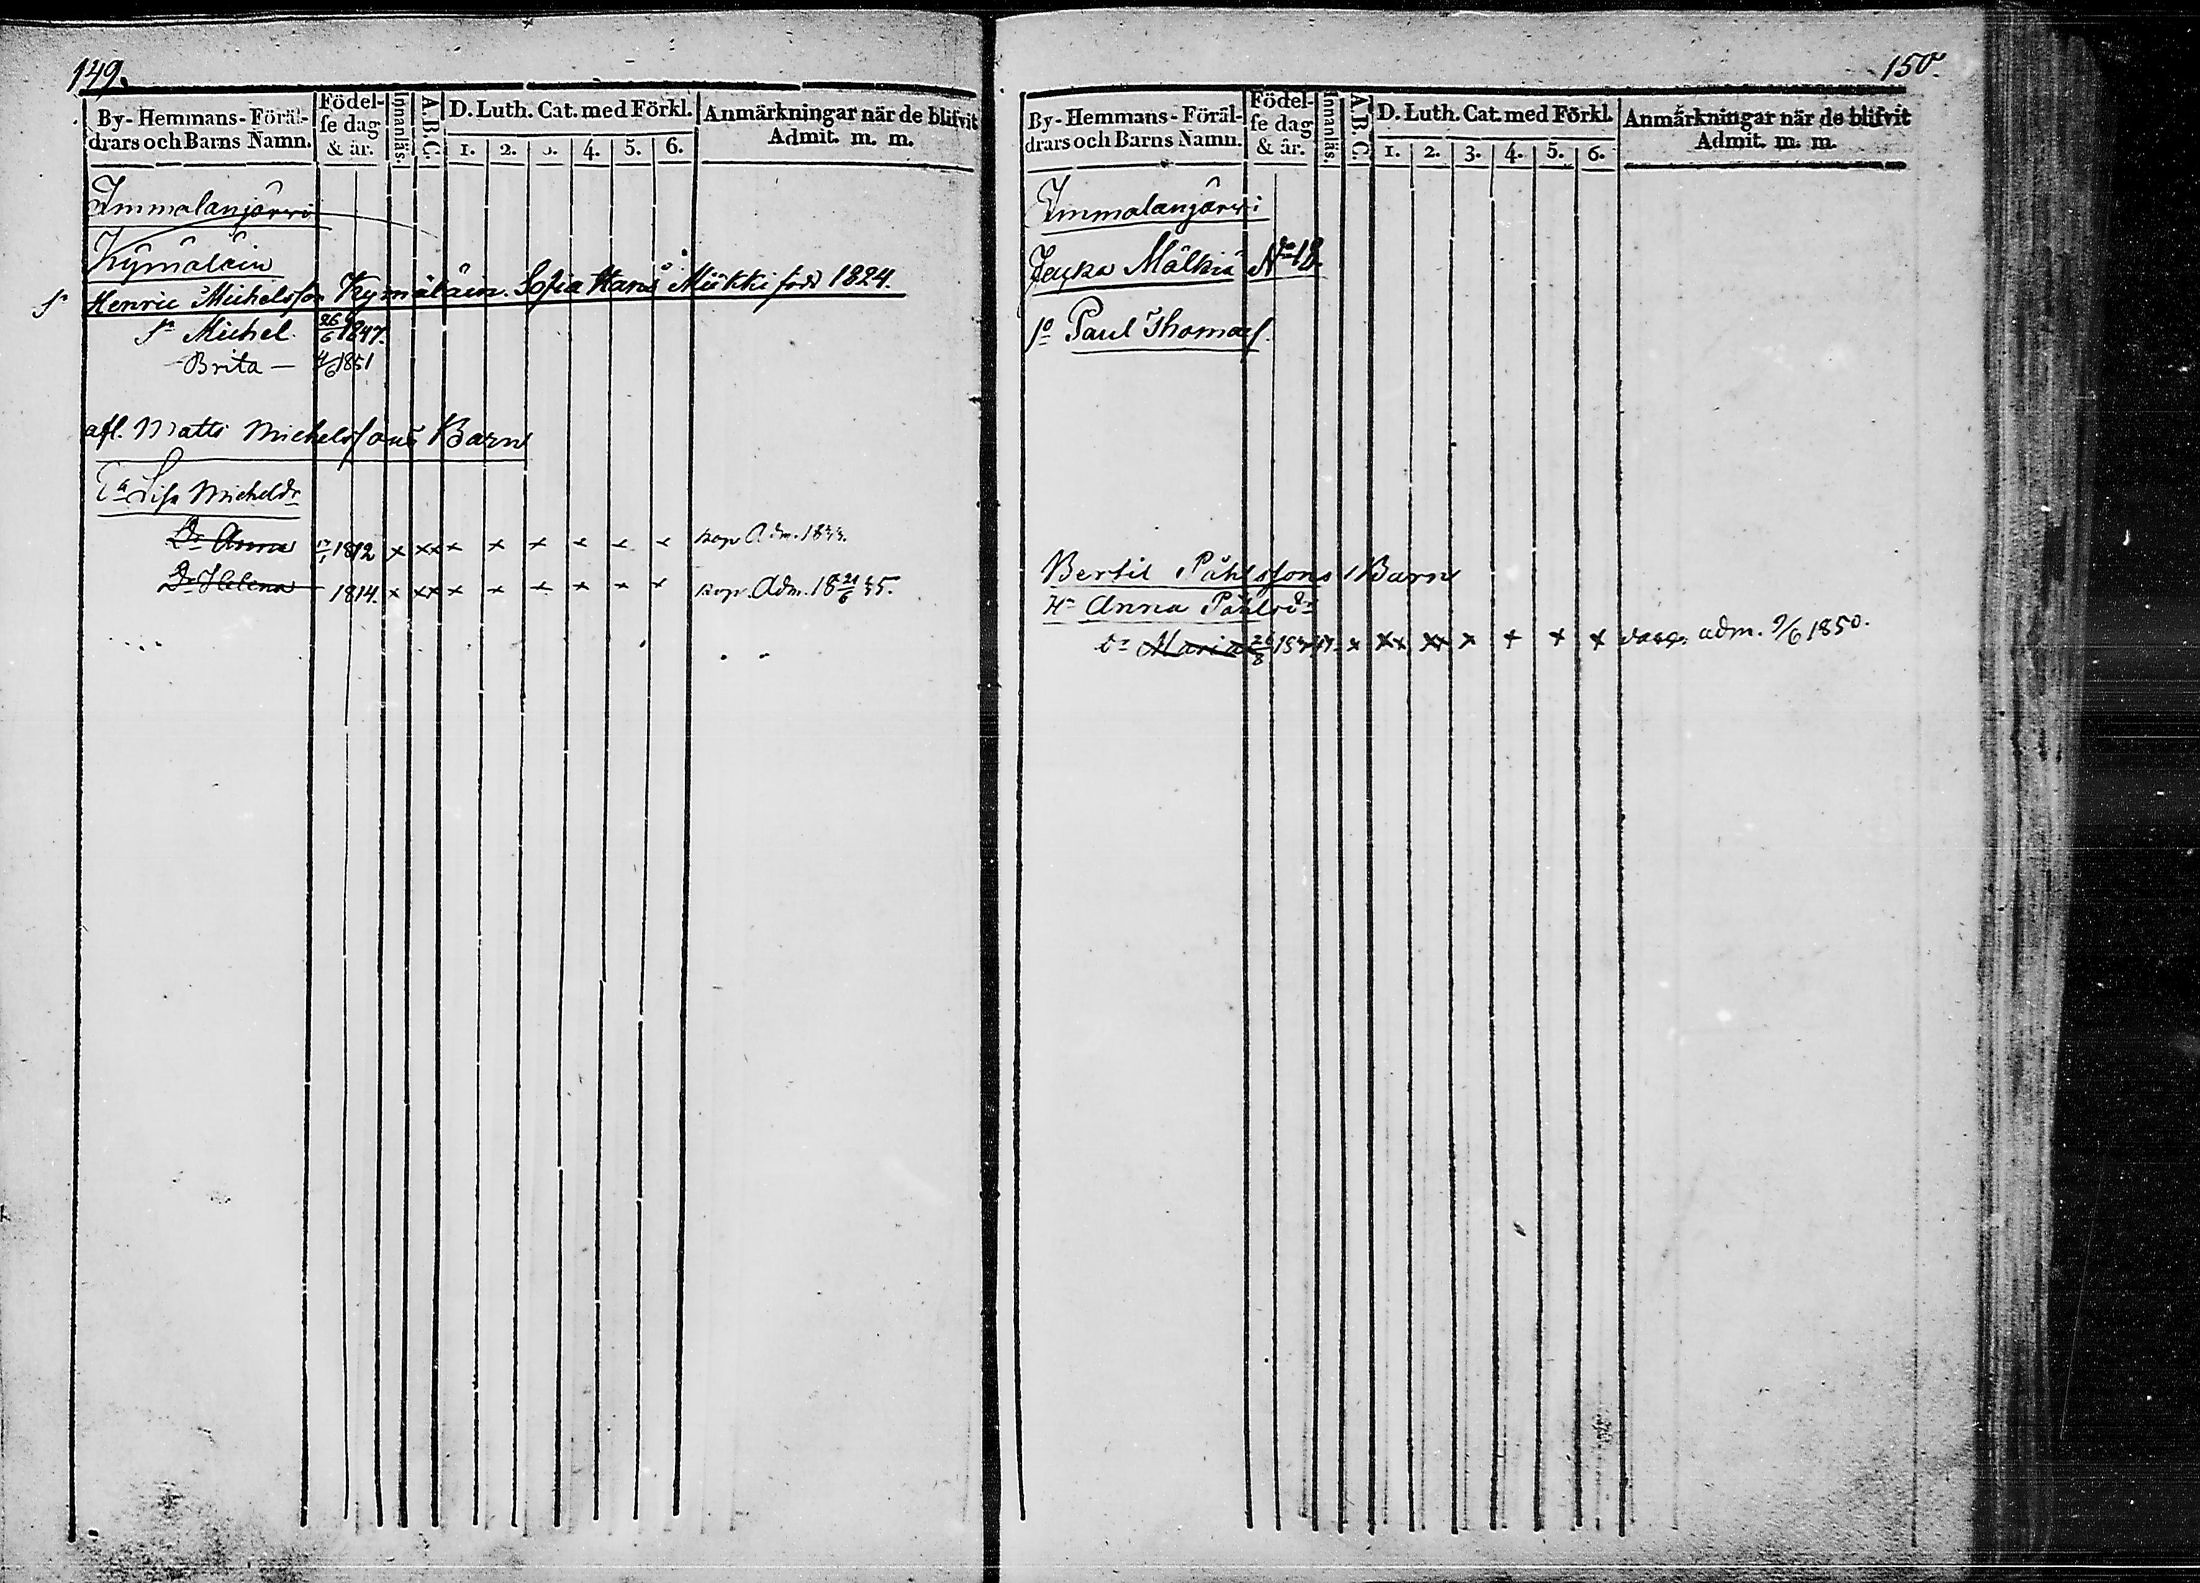 149.
By-Hemmans-Föräl-
drars och Barns Namn.
Födel-
se dag
& år.
Innanläs.
A.B.C.
D. Luth. Cat. med Förkl.
1. 2. 3. 4. 5. 6.
Anmärkningar när de blifvit
Admit. m. m.
Immalanjärwi
Kymäläin
Henric Michelsson Kymäläin. Sofia Hansd. Mükki född 1824.
Sn Michel. 26/6 1847.
Brita — 4/6 1851
afl. Matts Michelssons Barn
Ea Lisa Michelsdr
Dr Anna 1812 x xx x x x x x x kop. Adm. 1833.
Dr Helena 1814. x xx x x x x x x kop. Adm. 18 21/6 35.
150.
By-Hemmans-Föräl-
drars och Barns Namn.
Födel-
se dag
& år.
Innanläs.
A.B.C.
D. Luth. Cat. med Förkl.
1. 2. 3. 4. 5. 6.
Anmärkningar när de blifvit
Admit. m. m.
Immalanjärwi
Mälkiä No 12.
Paul Thomas
Bertil Påhlssons Barn
Hu Anna Påhlsdr
Dr Maria 26/8 x xx xx x x x x adm. 9/6 1850.